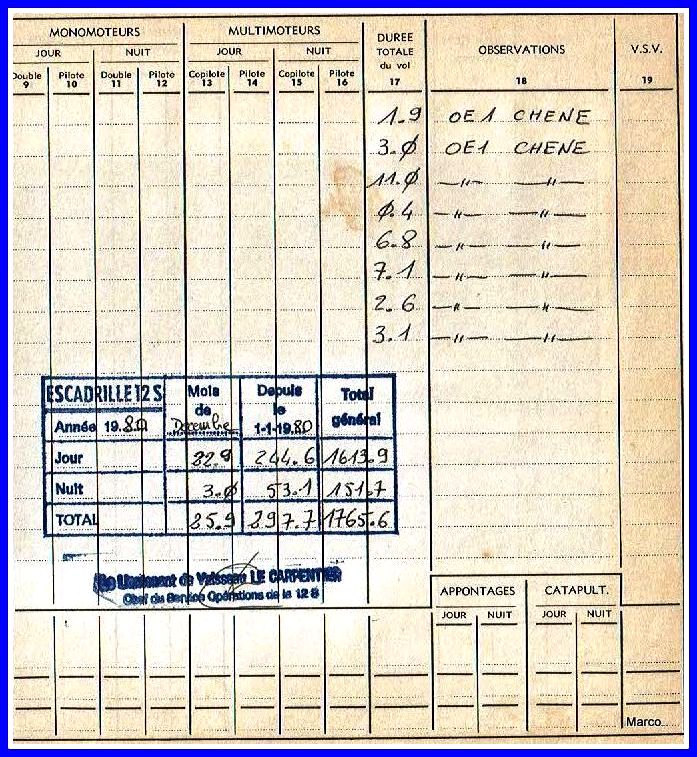 MONOMOTEURS MULTIMOTEURS DUREE TOTALE du vol OBSERVATIONS V.S.V.
JOUR NUIT JOUR NUIT
Double Pilote Double Pilote Copilote Pilote Copilote Pilote
9 10 11 12 13 14 15 16 17 18 19
1.9 OE1 CHENE
3.0 OE1 CHENE
11.0 —"— —"—
0.4 —"— —"—
6.8 —"— —"—
7.1 —"— —"—
2.6 —"— —"—
3.1 —"— —"—
ESCADRILLE 12 S Mois de Decembre Depuis le 1-1-1980 Total général
Année 1980
Jour 22.9 244.6 1613.9
Nuit 3.0 53.1 151.7
TOTAL 25.9 297.7 1765.6
Le Lieutenant de Vaisseau LE CARPENTIER
Chef du Service Opérations de la 12 S
APPONTAGES CATAPULT.
JOUR NUIT JOUR NUIT
Marco